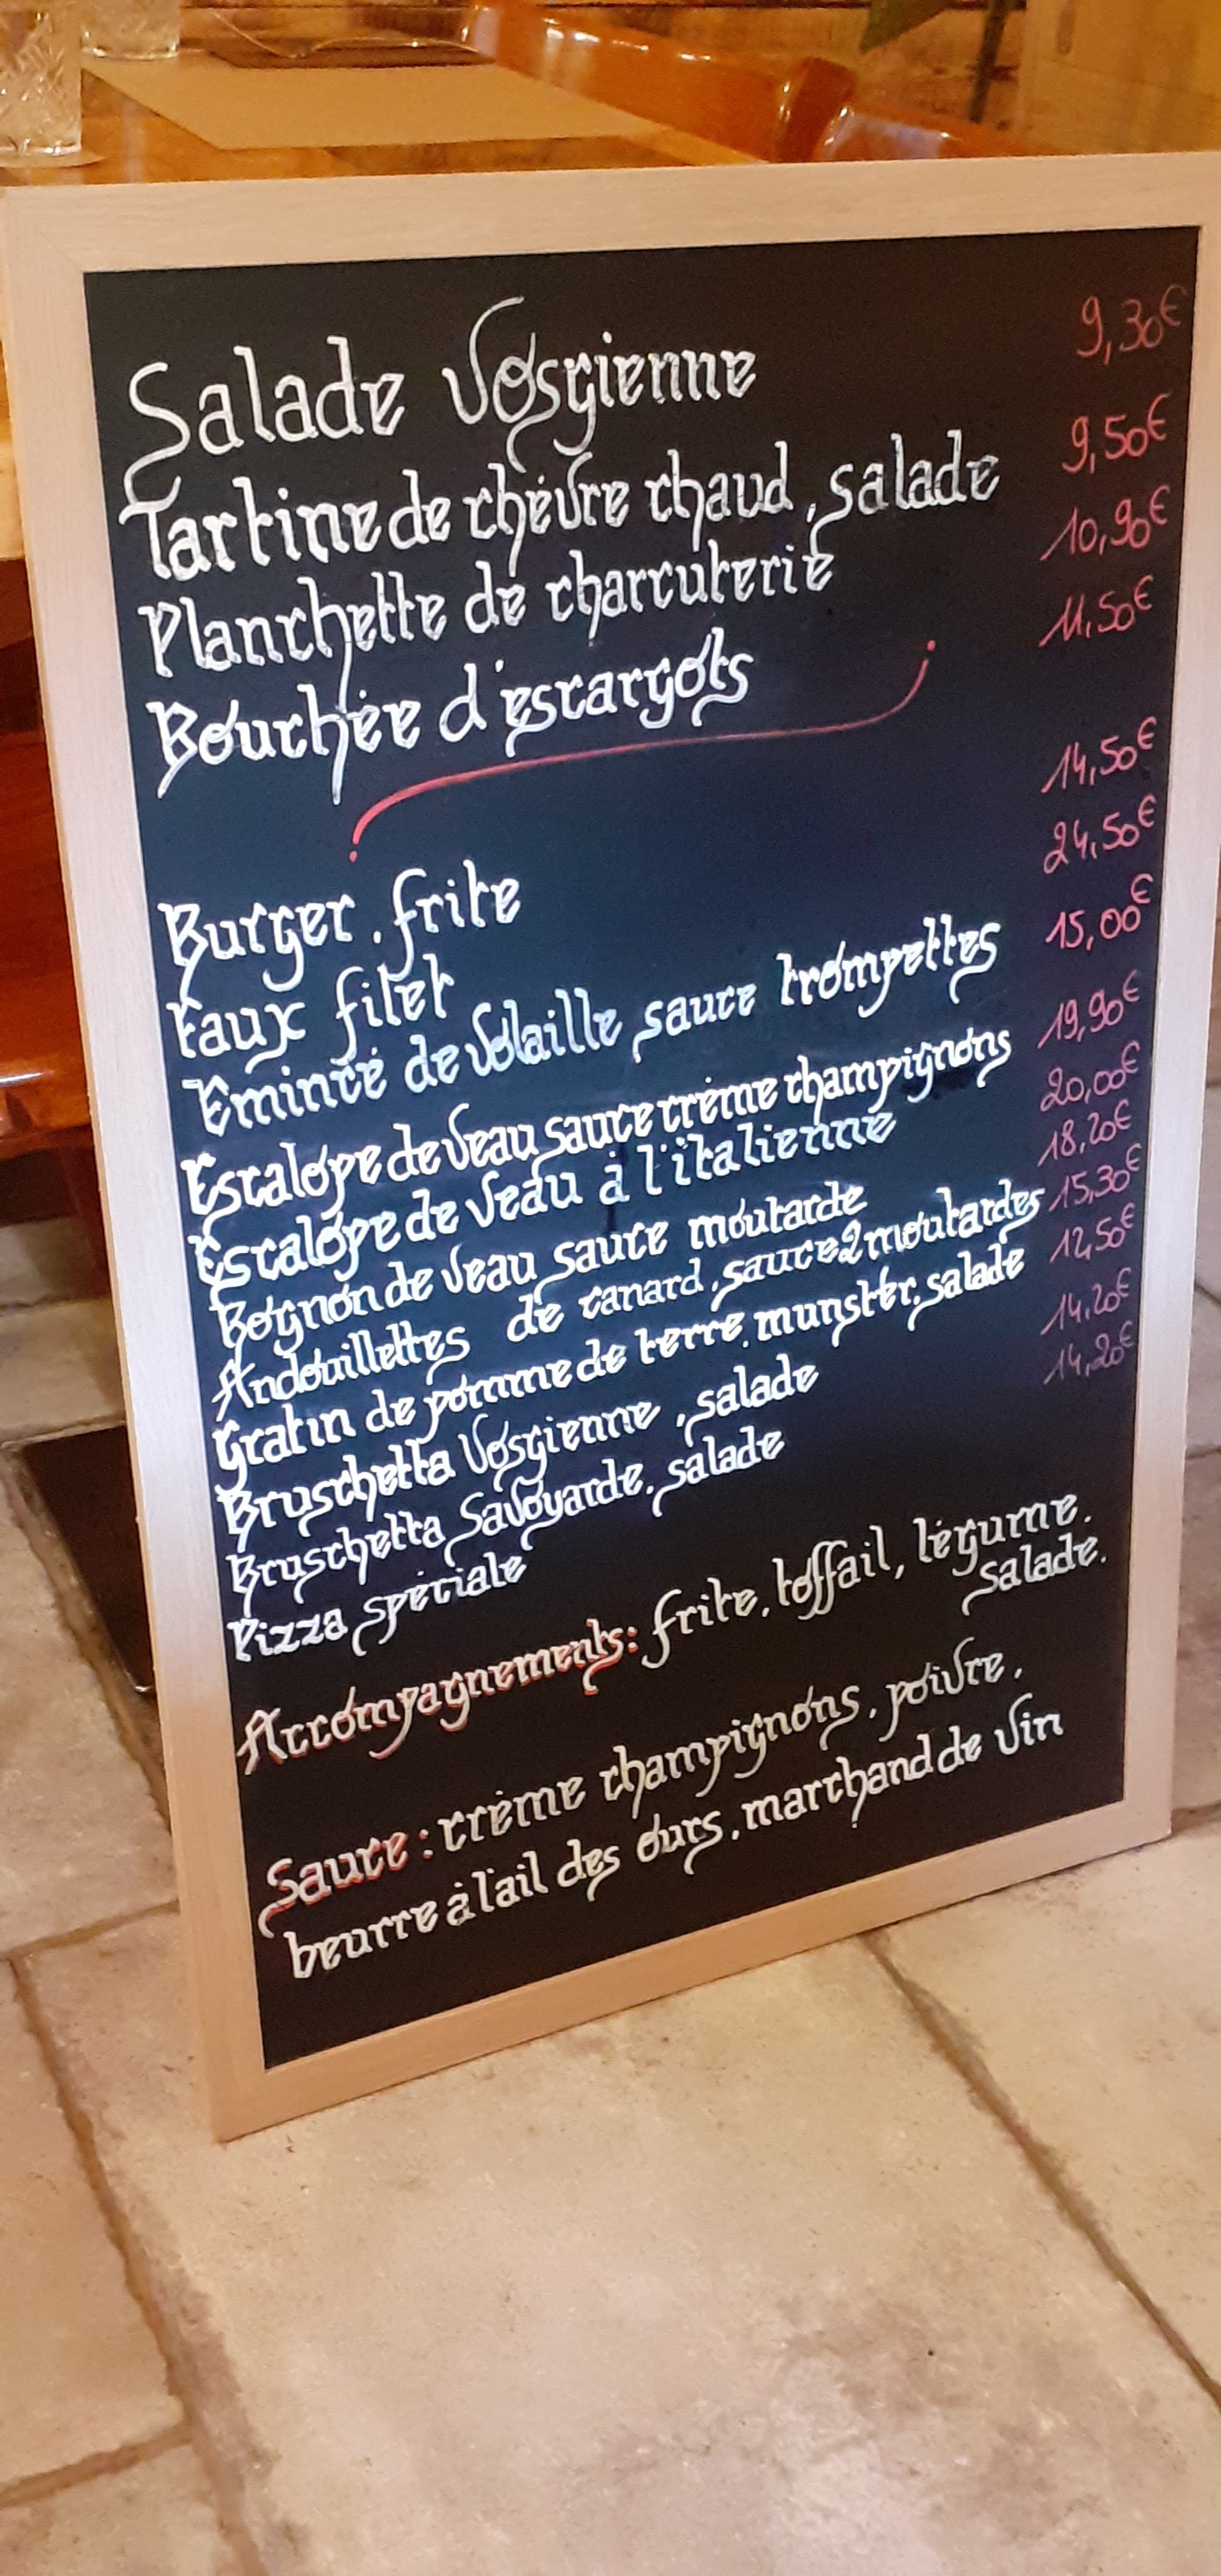 Salade Vosgienne 9,30€
Tartine de chèvre chaud, salade 9,50€
Planchette de charcuterie 10,90€
Bouchée d'escargots 11,50€
Burger, frite 14,50€
Faux filet 24,50€
Emincé de Volaille sauce trompettes 15,00€
Escalope de Veau sauce crème champignons 19,90€
Escalope de Veau à l'italienne 20,00€
Rognon de Veau sauce moutarde 18,20€
Andouillettes de canard, sauce 2 moutardes 15,30€
Gratin de pomme de terre, munster, salade 12,50€
Bruschetta Vosgienne, salade 14,20€
Bruschetta Savoyarde, salade 14,20€
Pizza spéciale
Accompagnements: frite, toffail, légume,
salade.
Sauce: crème champignons, poivre,
beurre à l'ail des ours, marchand de Vin